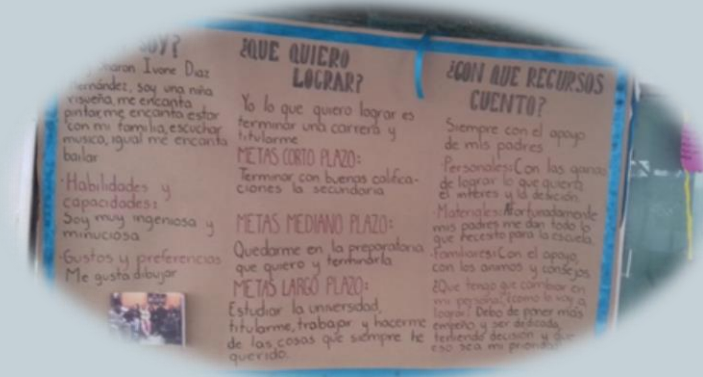 SOY?
Ivone Diaz
soy una niña
risueña, me encanta
pintar me encanta estar
con mi familia, escuchar
musica, igual me encanta
bailar
·Habilidades y
capacidades:
Soy muy ingeniosa y
minuciosa
·Gustos y preferencias
Me gusta dibujar
¿QUE QUIERO
LOGRAR?
Yo lo que quiero lograr es
terminar una carrera y
titularme
METAS CORTO PLAZO:
Terminar con buenas califica-
ciones la secundaria
METAS MEDIANO PLAZO:
Quedarme en la preparatoria
que quiero y terminarla
METAS LARGO PLAZO:
Estudiar la universidad,
titularme, trabajar y hacerme
de las cosas que siempre he
querido.
¿CON QUE RECURSOS
CUENTO?
Siempre con el apoyo
de mis padres
·Personales: Con las ganas
de lograr lo que quiero,
el interes y la
·Materiales: Afortunadamente
mis padres me dan todo lo
que necesito para la escuela.
·Familiares: Con el apoyo,
con los animos y consejos
¿Que tengo que cambiar en
mi persona? ¿como lo voy a
lograr? Debo de poner mas
empeño y ser dedicada,
teniendo decisión y que
eso sea mi prioridad